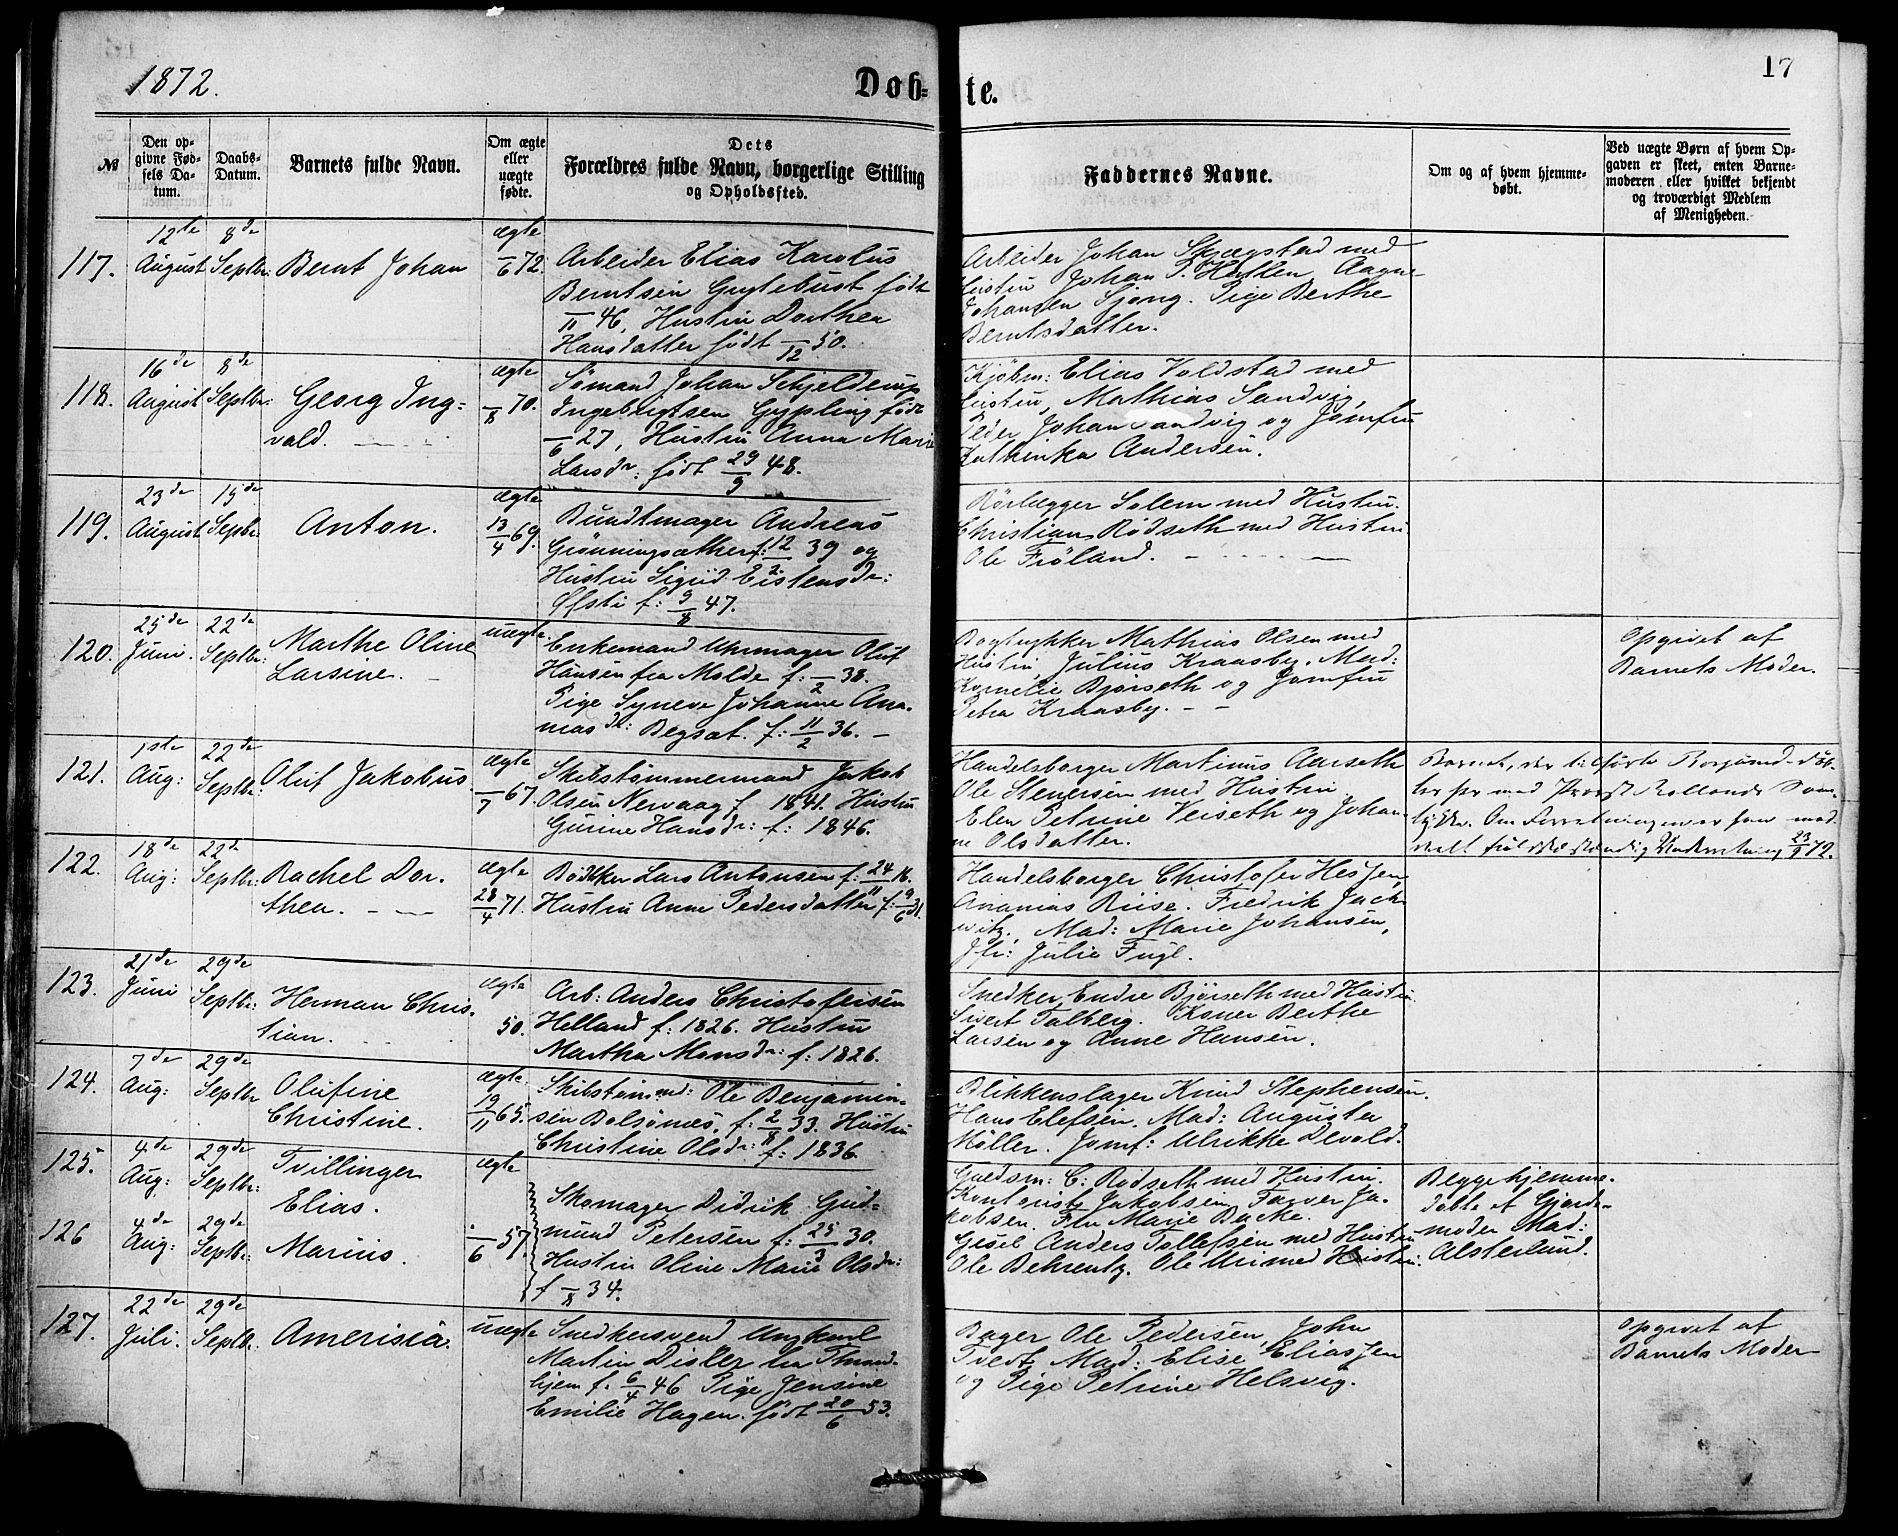 1872.
Døb-
te.
17
№
Den op-
givne Fød-
sels Da-
tum.
Daabs-
Datum.
Barnets fulde Navn.
Om ægte
eller
uægte
fødte.
Dets
Forældres fulde Navn, borgerlige Stilling
og Opholdssted.
Faddernes Navne.
Om og af hvem hjemme-
døbt.
Ved uægte Børn af hvem Op-
gaven er skeet, enten Barne-
moderen eller hvilket bekjendt
og troværdigt Medlem
af Menigheden.
117.
12te
August
8de
Septbr:
Bernt Johan
ægte
/6 72.
Arbeider Elias Karolus
Berntsen Grytebust født
/11 46, Hustru Dorthea
Hansdatter født /12 50.
Arbeider Johan Skjegstad med
Hustru Johan P. Hatlen, Aagne
Johansen Sjong. Pige Berthe
Berntsdatter.
118.
16de
August
8de
Septbr:
Georg Ing-
vald.
ægte
/8 70.
Sømand Johan Schjelderup
Ingebrigtsen Gypling født
/6 27, Hustru Anna Marie
Larsdr: født 29/9 48.
Kjøbm: Elias Voldstad med
Hustru, Mathias Sandvig,
Peder Johan Sandvig og Jomfru
Kathinka Andersen.
119.
23de
August
15de
Septbr.
Anton.
ægte
13/4 69.
Bundtmager Andreas
Grønningsæther f: 12/2 39 og
Hustru Sigrid Eistensdr:
Øfsti f: 9/8 47.
Rørlægger Solem med Hustru.
Christian Rødseth med Hustru
Ole Frøland.
120.
25de
Juni.
22de
Septbr:
Marthe Oline
Larsine.
uægte.
Enkemand Uhrmager Oluf
Hansen fra Molde f: /2 38.
Pige Syneve Johanne Ana-
nias dr: Begsæt. f: 11/2 36.
Bogtrykker Mathias Olsen med
Hustru, Julius Kraasby, Mad:
Kornelie Bjørseth og Jomfru
Petra Kraasby.
Opgivet af
Barnets Moder.
121.
1ste
Aug:
22de
Septbr:
Oluf Jakobus.
ægte
/7 67.
Skibstømmermand Jakob
Olsen Nervaag f. 1841. Hustru
Gurine Hansdr: f: 1846.
Handelsborger Martinus Aarseth
Ole Stenersen med Hustru
Elen Petrine Veiseth og Johan-
ne Olsdatter.
Barnet, der tilhørte Borgund, døb-
tes her med Provst Rollands Sam-
tykke. Om Forretningen er ham med-
delt fuldstændig Underretning 23/9 72.
122.
18de
Aug:
22de
Septbr:
Rachel Dor-
thea.
ægte
28/4 71.
Bødkker Lars Antonsen f: 24/11 16.
Hustru Anne Pedersdatter f: 9/6 31.
Handelsborger Christofer Hessen,
Ananias Riise. Fredrik Jack-
witz, Mad: Marie Johansen,
Jfr: Julie Fugl.
123.
21de
Juni
29de
Septbr:
Herman Chris-
tian.
ægte
50.
Arb: Anders Christofersen
Helland f: 1826. Hustru
Martha Monsdr: f: 1826.
Snedker Endre Bjørseth med Hustru
Sivert Talberg. Koner Berthe
Larsen og Anne Hansen.
124.
7de
Aug:
29de
Septbr
Olufine
Christine.
ægte
19/11 65.
Skibstømmd: Ole Benjamin-
sen Bolsønes, f: 2/8 33. Hustru
Christine Olsdr: f: 1836
Blikkenslager Knud Stephensen.
Hans Elefsen. Mad: Augusta
Møller. Jomf: Ulrikke Devold.
125.
4de
Aug:
29de
Septbr:
Tvillinger
Elias.
ægte
126
4de
Aug:
29de
Septbr:
Marius.
/6 57.
Skomager Didrik Gud-
mund Petersen f: 25/3 30.
Hustru Oline Marie Olsdr:
f /8 34.
Guldsm: C: Rødseth med Hustru.
Kontorist Jakobsen, Farver Ja-
kobsen. Frk Marie Backe.
Gjsel Anders Tollefsen med Hustru
Ole Behrentz. Ole Uri med Hustru.
Begge hjemme-
døbte af Gjorde-
moder Mad:
Alsterlund.
127.
22de
Juli.
29de
Septbr.
Amerisia.
uægte
Snedkersvend Ungkarl
Martin Disler fra Thrond-
hjem f. 6/4 46 Pige Jensine
Emilie Hagen. født 20/6 53.
Bager Ole Pedersen, John
Tvedt, Mad: Elise Eliassen
og Pige Petrine Helsvig.
Opgivet af
Barnets Moder